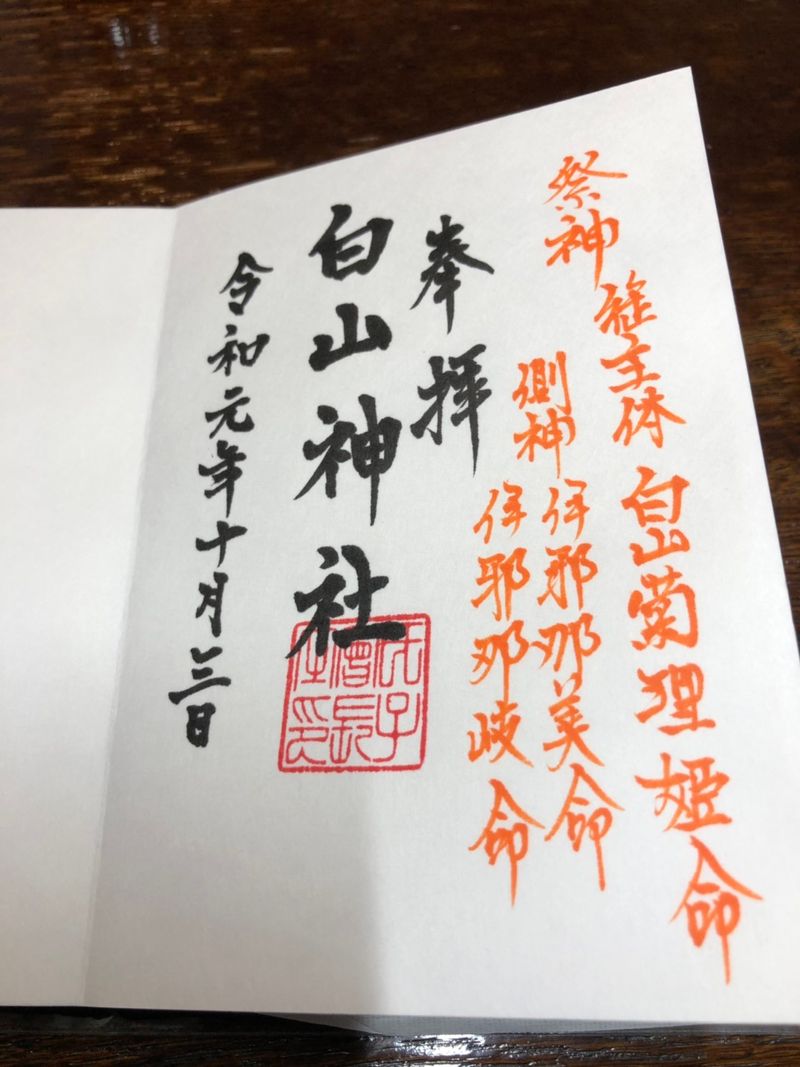 祭神
主体 白山菊理姫命
側神 伊邪那美命
伊邪那岐命
奉拝
白山神社
令和元年十月三日
氏子
會長
印